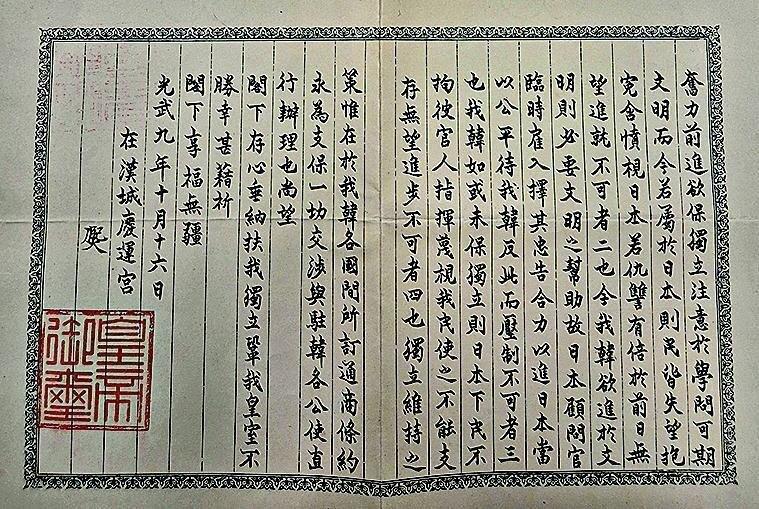 奮力前進欲保獨立注意於學問可期
文明而今若屬於日本則民皆失望抱
寃含憤視日本若仇讐有倍於前日無
望進就不可者二也今我韓欲進於文
明則必要文明之幫助故日本顧問官
臨時雇入擇其忠告合力以進日本當
以公平待我韓反此而壓制不可者三
也我韓如或未保獨立則日本下民不
拘彼官人指揮蔑視我民使之不能支
存無望進步不可者四也獨立維持之
策惟在於我韓各國間所訂通商條約
永為支保一切交涉與駐韓各公使直
行辦理也尚望
閣下存心垂納扶我獨立鞏我皇室不
勝幸甚藉祈
閣下享福無疆
光武九年十月十六日
在漢城慶運宮
皇帝
御璽